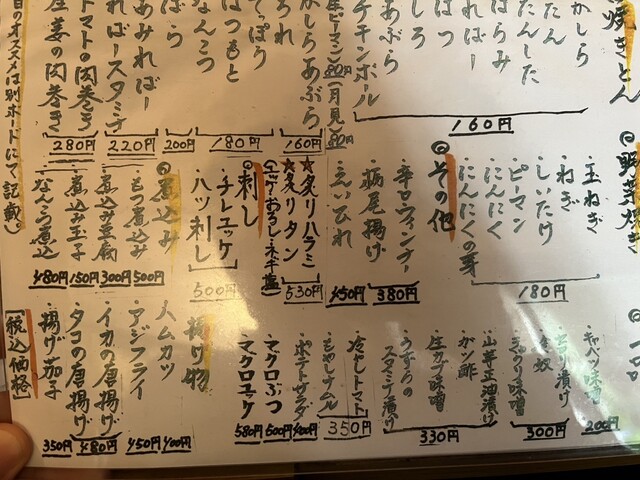 焼きとん
かしら
たん
たんした
はらみ
ればー
しろ
あぶら
チチンボール
160円
生ピーマン 80円
(月見) 80円
かしらあぶら
160円
てっぽう
はつもと
なんこつ
180円
ばら
200円
あみれば
ればースタミナ
220円
トマトの肉巻き
生姜の肉巻き
280円
日のオススメは別ボードにて記載)
◎野菜焼き
・玉ねぎ
・ねぎ
・しいたけ
・ピーマン
・にんにく
・にんにくの芽
180円
◎その他
・辛口ウィンナー
・栃尾揚げ
380円
・えいひれ
450円
★炙りハラミ
★炙りタン
530円
◎刺し
・チレユッケ
・ハツ刺し
500円
◎煮込み
・もつ煮込み
500円
・煮込み豆腐
300円
・煮込み玉子
150円
・なんこつ煮込
480円
◎一品
・キャベツ味噌
200円
300円
・生カブ味噌
・ガツ酢
・山芋正油漬け
・うずらの
スタミナ漬け
330円
・冷やしトマト
・もやしナムル
350円
・ポテトサラダ
400円
・マグロぶつ
500円
・マグロユッケ
580円
揚げ物
・ハムカツ
400円
・アジフライ
450円
・イカの唐揚げ
・タコの唐揚げ
480円
・揚げ茄子
350円
[税込価格]